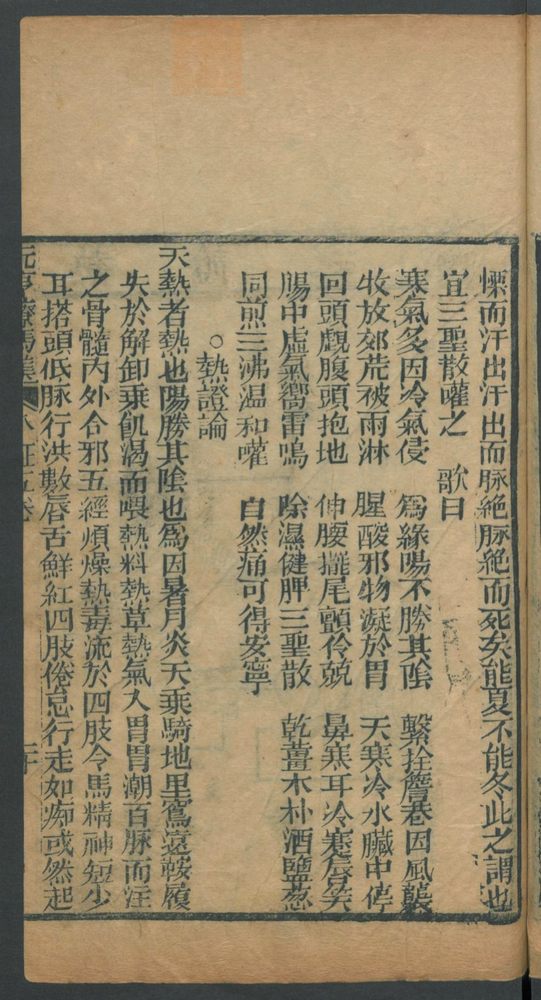 慄而汗出汗出而脉絶脉絶而死矣能夏不能冬此之謂也
宜三聖散嚾之　歌曰
寒氣多因冷氣侵　爲緣陽不勝其陰　繫拴簷巷因風襲
牧放郊荒被雨淋　腥酸邪物凝於胃　天寒冷水臟中停
回頭覷腹頭抱地　伸腰擺尾顫伶兢　鼻寒耳冷蹇唇笑
腸中虛氣嚮雷鳴　除濕健脾三聖散　乾薑木朴酒鹽葱
同煎三沸温和嚾　自然痛可得安寧
○熱證論
夫熱者熱也陽勝其陰也爲因暑月炎天乘騎地里窵遠鞍履
失於解卸乘飢渴而喂熱料熱草熱氣入胃胃潮百脉而注
之骨髓內外合邪五經煩燥熱毒流於四肢令馬精神短少
耳搭頭低脉行洪數唇舌鮮紅四肢倦怠行走如痴或然起
元亨療馬集　八証五卷